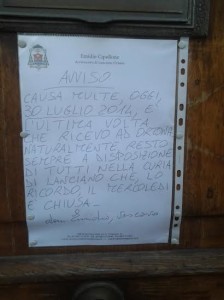 Emidio Cipollone
AVVISO
CAUSA MULTE, OGGI,
30 LUGLIO 2014, E'
L'ULTIMA VOLTA
CHE RICEVO AD ORTONA
NATURALMENTE RESTO
SEMPRE A DISPOSIZIONE
DI TUTTI NELLA CURIA
DI LANCIANO CHE, LO
RICORDO, IL MERCOLEDÌ
È CHIUSA.